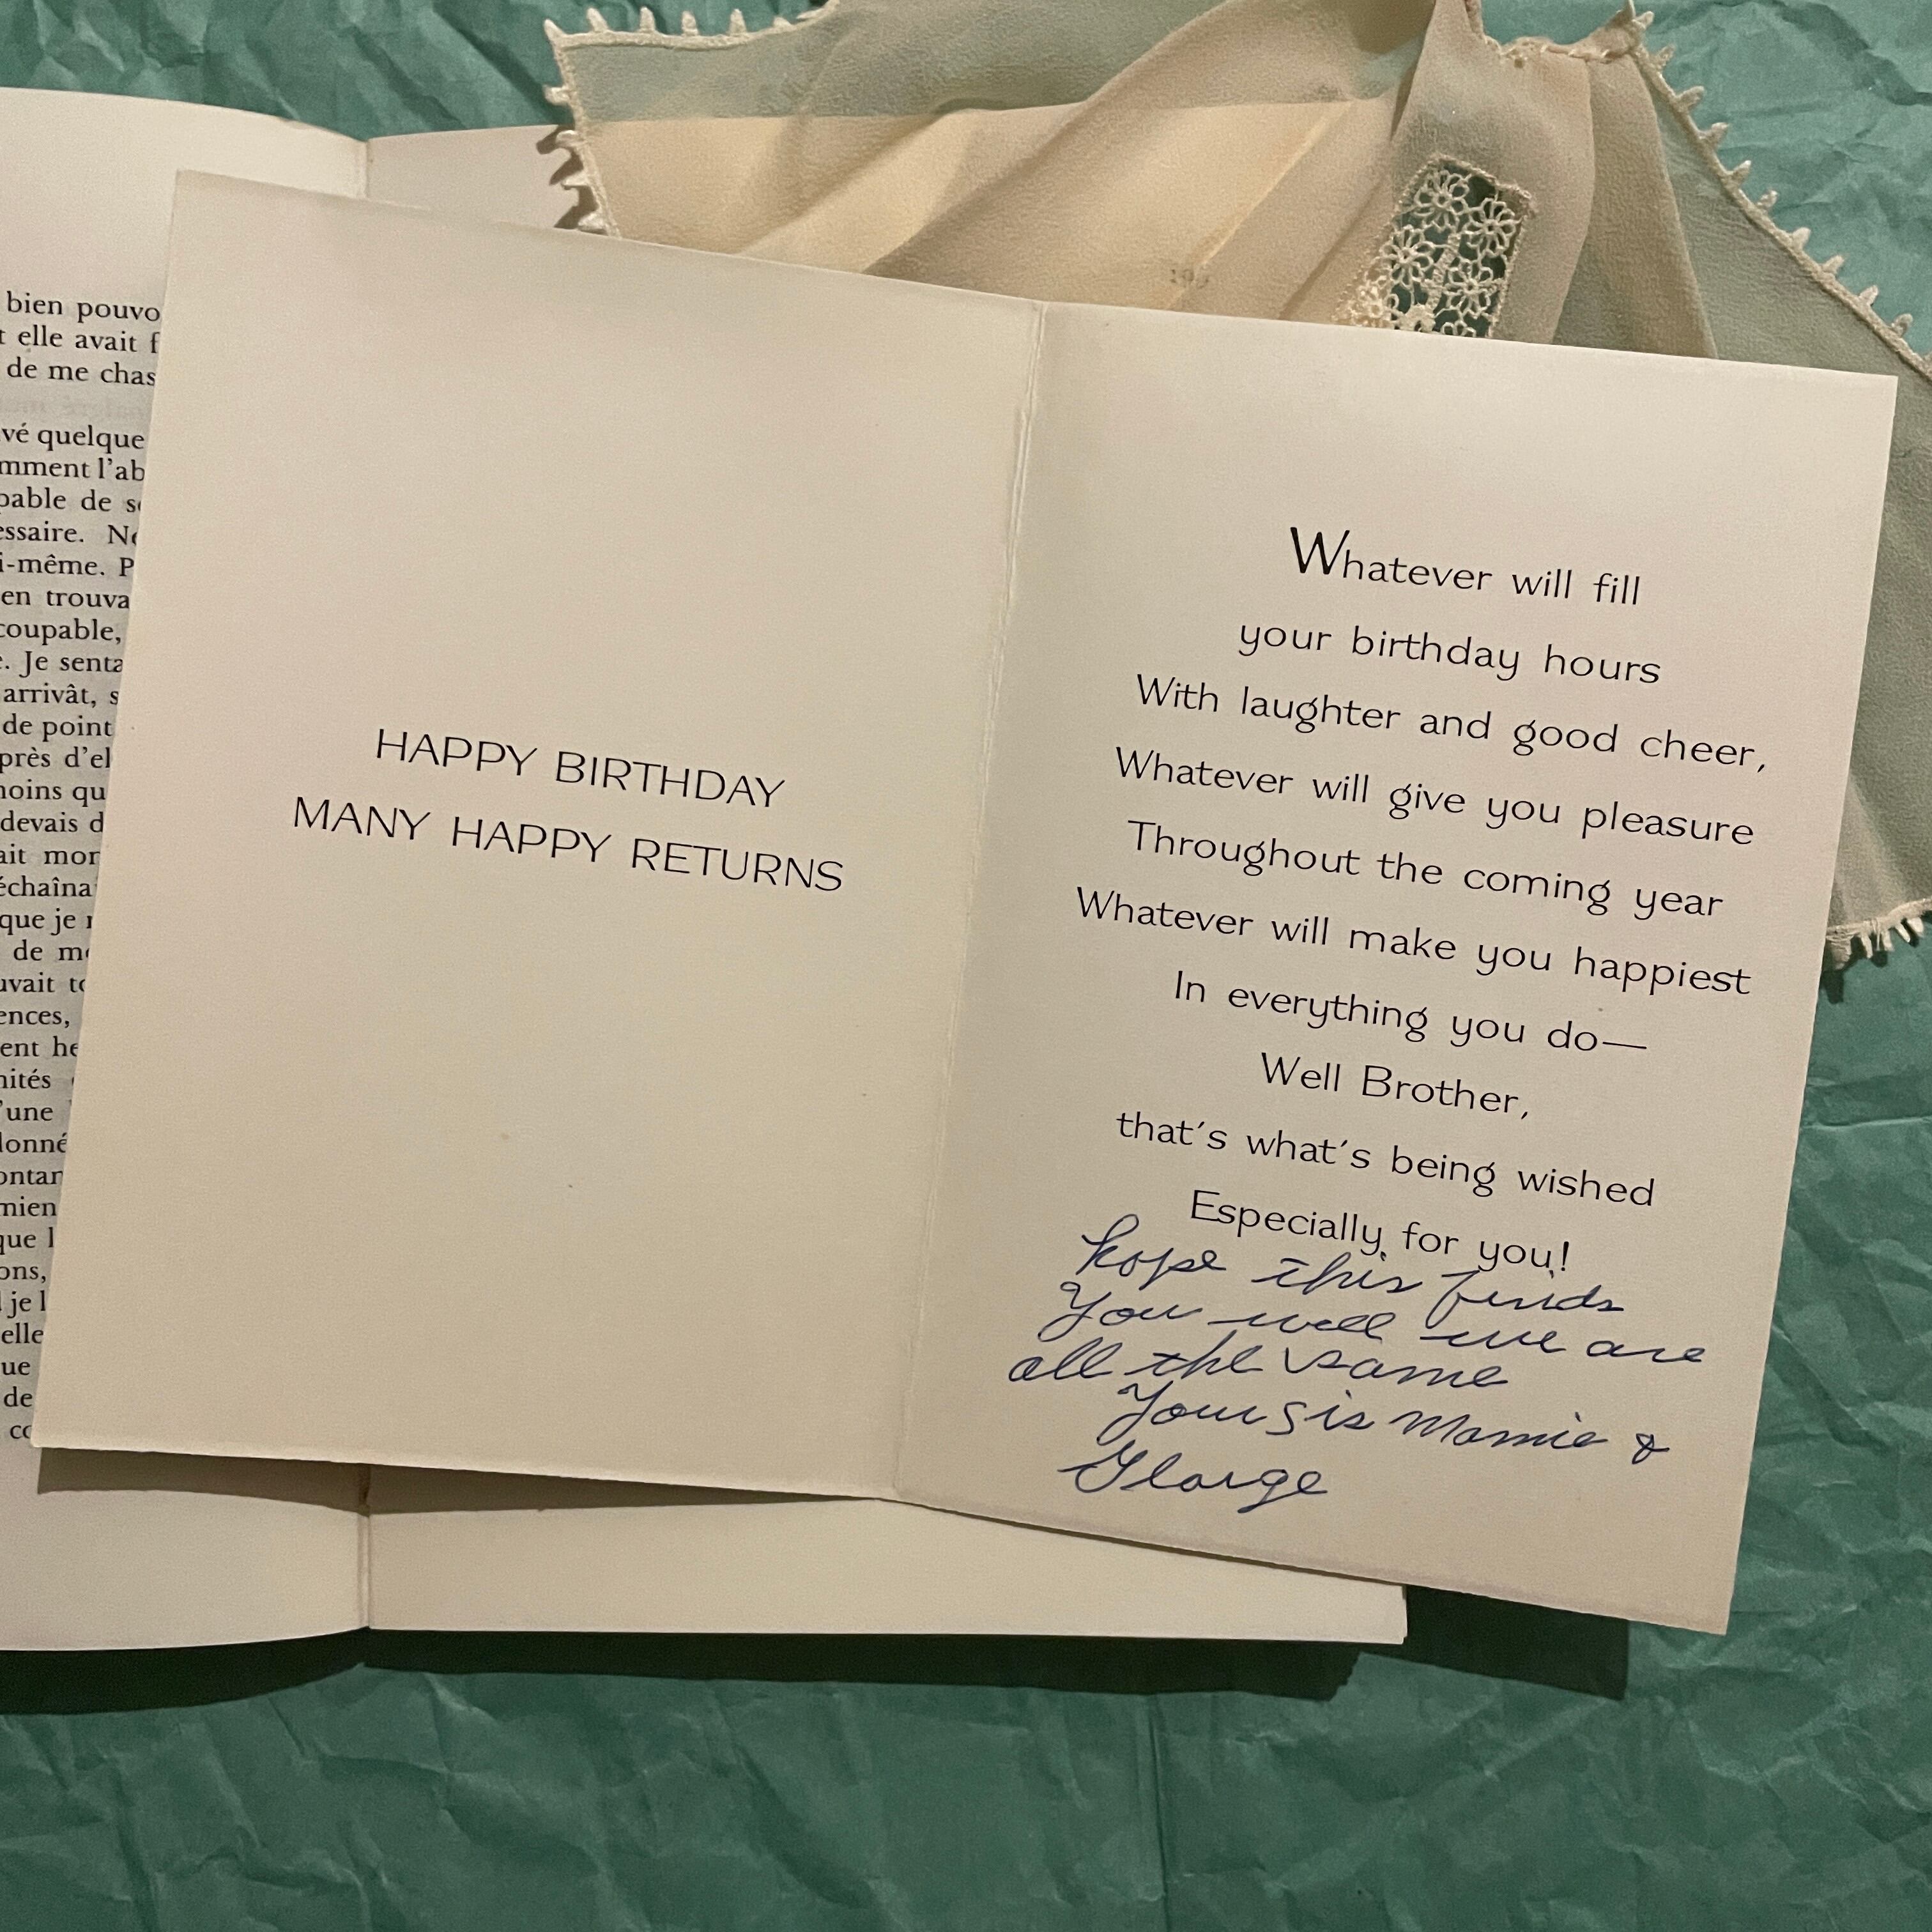 bien pouvo
elle avait f
de me chas
vé quelque
mment l'ab
pable de s
essaire. N
i-même. P
en trouva
coupable,
. Je senta
arrivât, s
de point
près d'el
moins qu
devais d
ait mor
échaîna
que je
de m
uvait t
ences,
ent he
nités
'une
donné
ontar
mien
que l
ons,
je l
elle
ue
de
co
HAPPY BIRTHDAY
MANY HAPPY RETURNS
Whatever will fill
your birthday hours
With laughter and good cheer,
Whatever will give you pleasure
Throughout the coming year
Whatever will make you happiest
In everything you do—
Well Brother,
that's what's being wished
Especially for you!
hope this finds
You well we are
all the same
Your Sis Mamie &
George